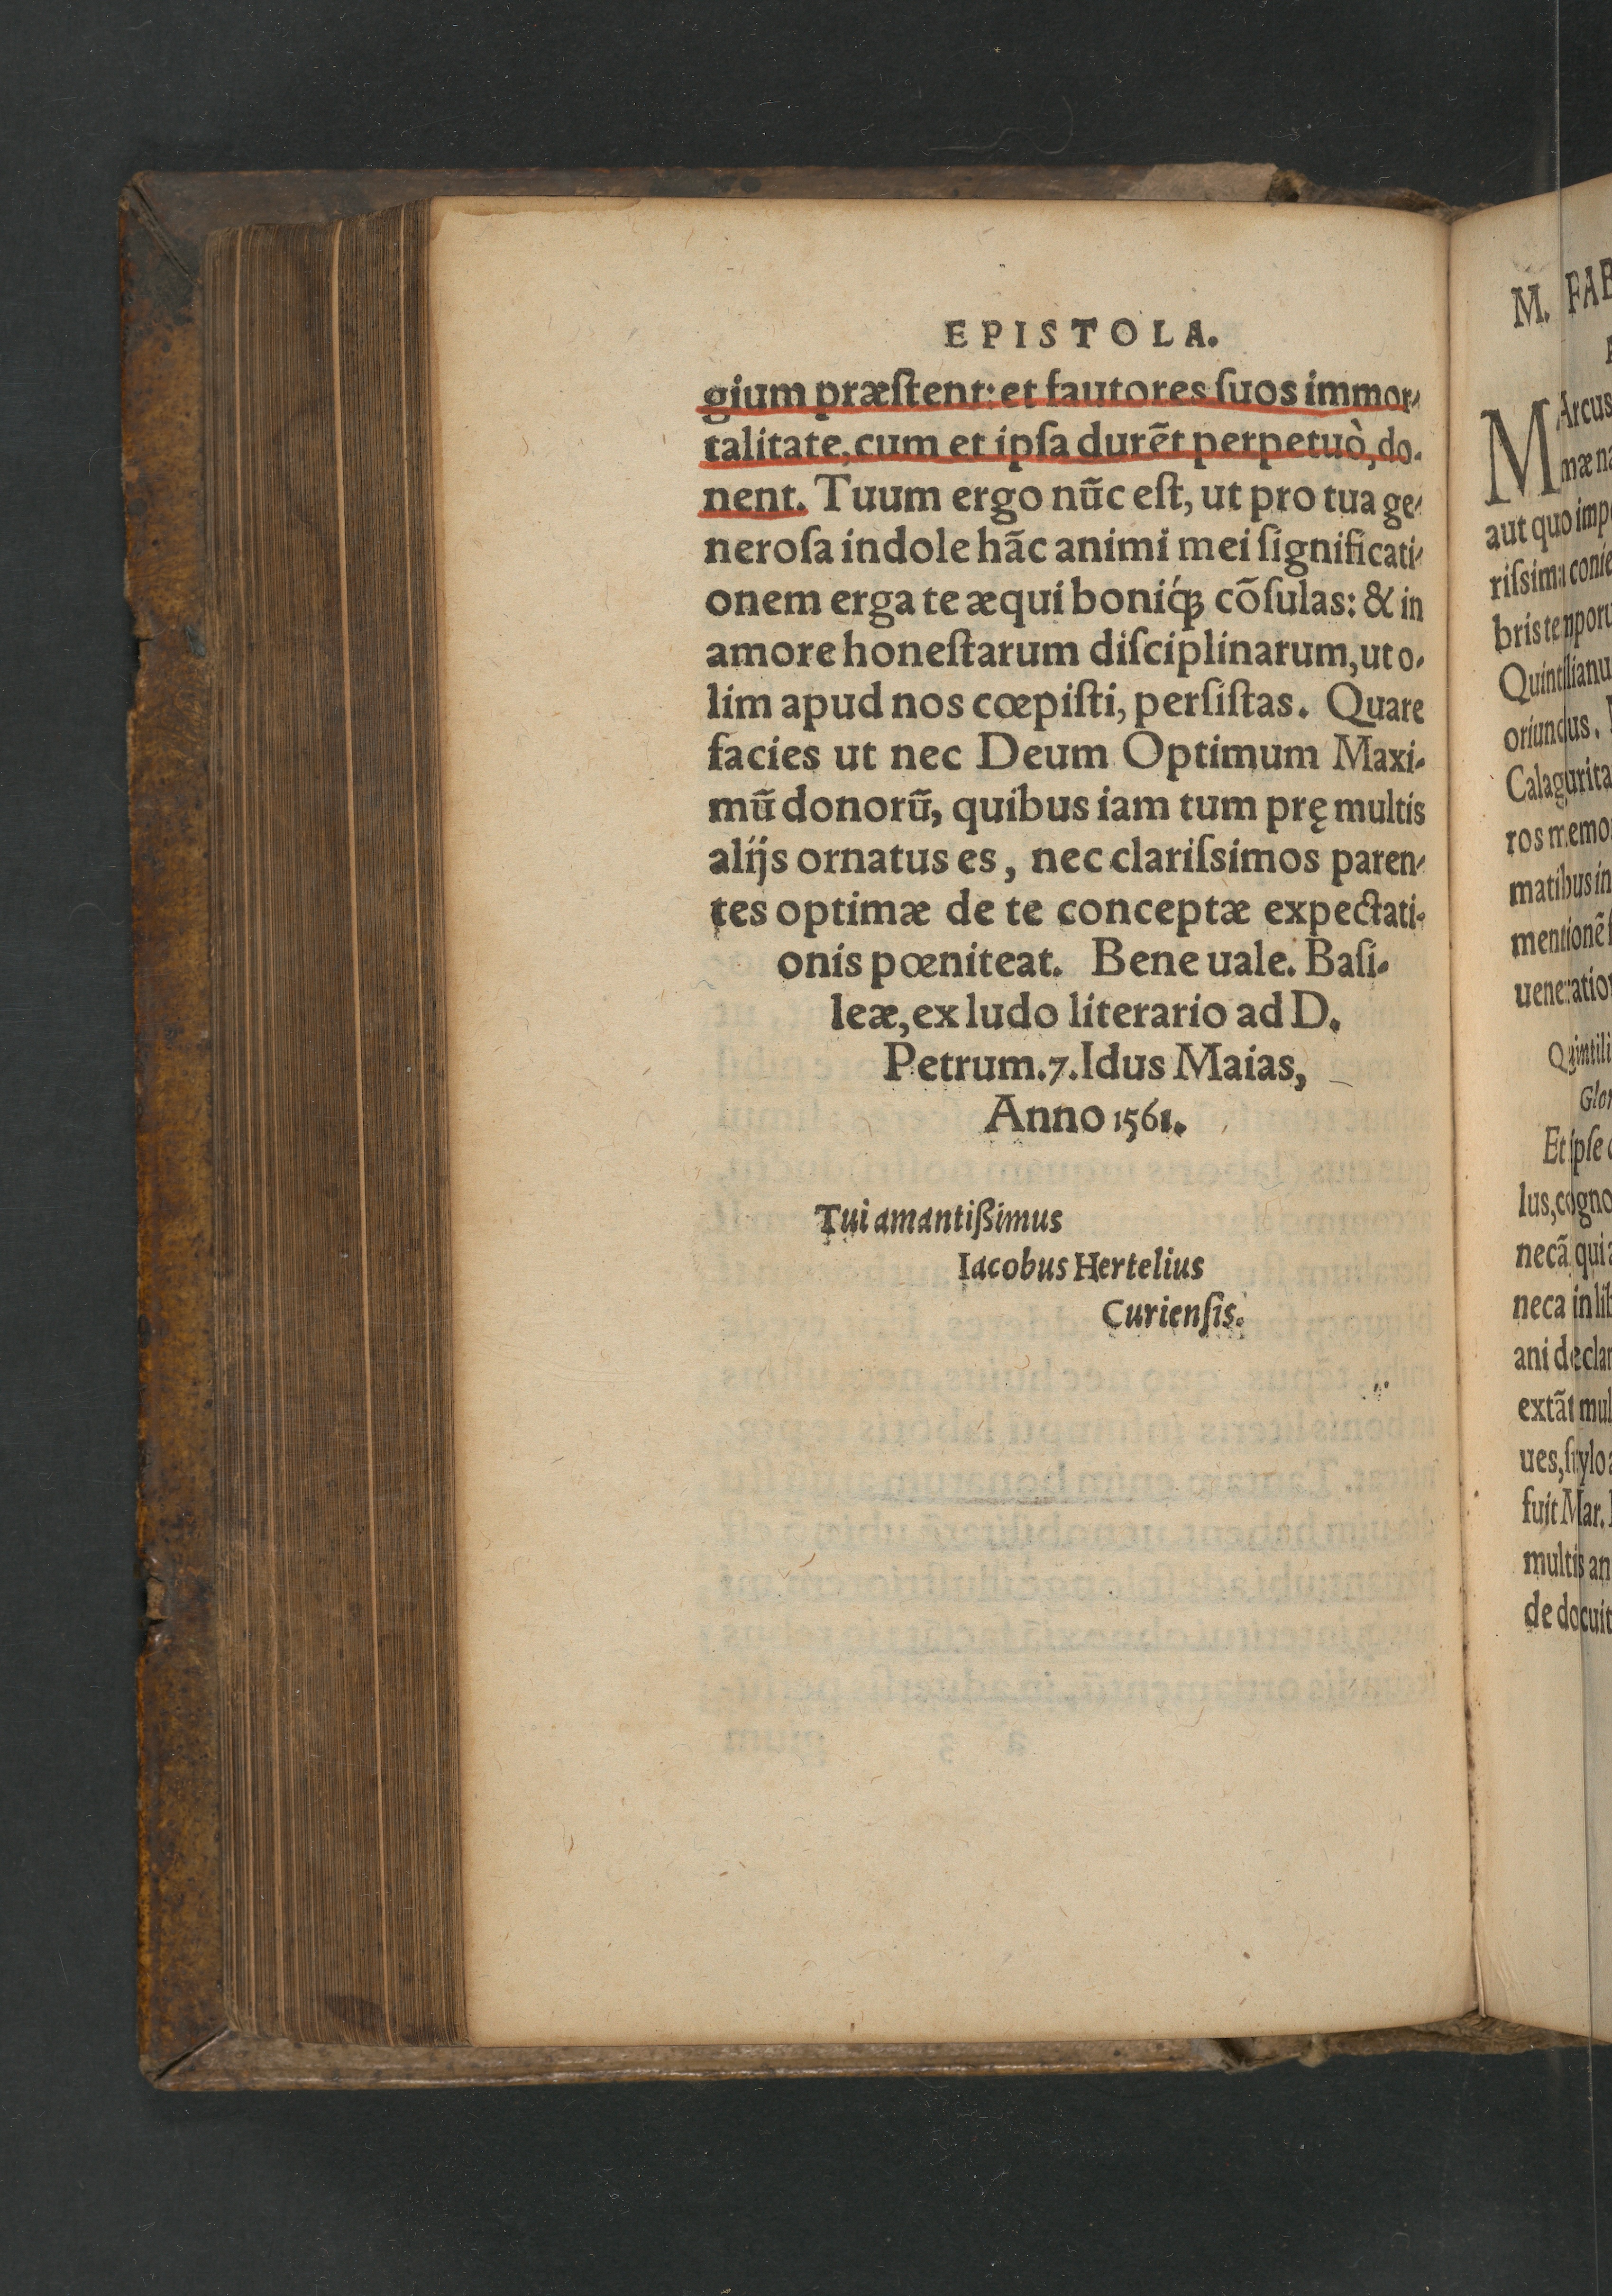 EPISTOLA.
gium præſtent: et fautores ſuos immor-
talitate, cum et ipſa durẽt perpetuò, do-
nent. Tuum ergo nũc eſt, ut pro tua ge-
neroſa indole hãc animi mei ſignificati-
onem erga te æqui boniq́ꝫ cõſulas: & in
amore honeſtarum diſciplinarum, ut o-
lim apud nos cœpiſti, perſiſtas. Quare
facies ut nec Deum Optimum Maxi-
mũ donorũ, quibus iam tum prę multis
alijs ornatus es, nec clariſsimos paren-
tes optimæ de te conceptæ expectati-
onis pœniteat. Bene uale. Baſi-
leæ, ex ludo literario ad D.
Petrum. 7. Idus Maias,
Anno 1561.
Tui amantißimus
Iacobus Hertelius
Curienſis.
M. FAB
Arcus
mæ na
aut quo imp
riſsima conie
bris temporu
Quintilianu
oriundus.
Calagurita
ros memo
matibus in
mentionẽ
ueneratio
Quintili
Glor
Et ipſe
lus, cogno
necã qui
neca in lib
ani declar
extãt mul
ues, ſtylo
fuit Mar.
multis an
de docuit